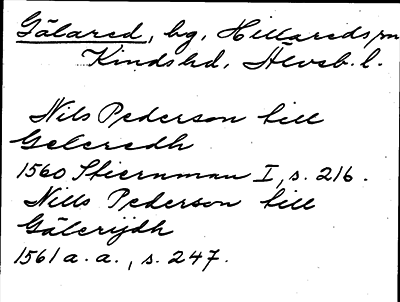 Gälared, by, Hillareds sn
Kinds hd, Älvsb. l.
Nils Pederson till
Geleredh
1560 Stiernman I, s. 216.
Nills Pederson till
Gälerijdh
1561 a. a., s. 247.